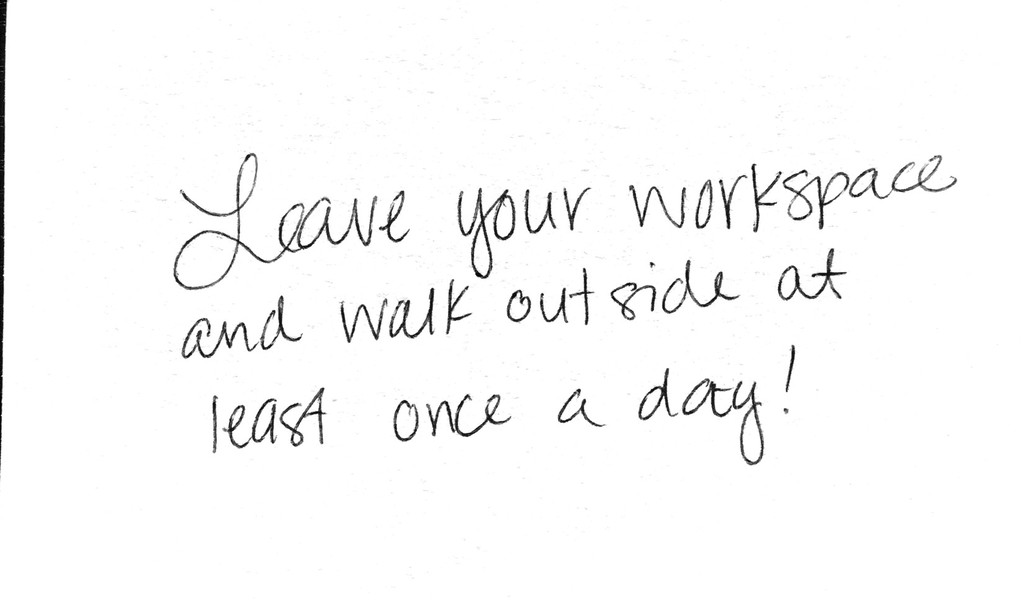 Leave your workspace
and walk outside at
least once a day!